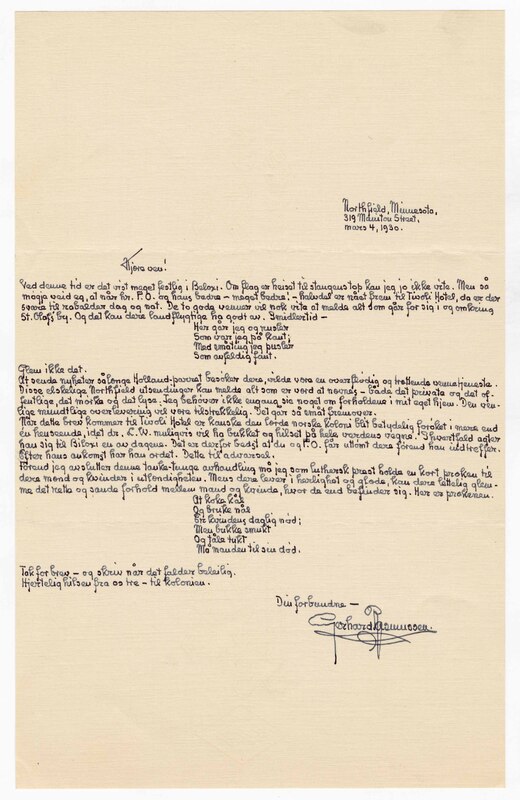 Northfield, Minnesota,
319 Manitou Street,
mars 4, 1930.
Kjære ven!
Ved denne tid er det vist meget festlig i Beloxi. Om flag er heisat til stangens top kan jeg jo ikke vite. Men så
meget veid eg, at når hr. P.O. og hans bedre – meget bedre! – halvdel er nået frem til Tivoli Hotel, da er der
svære til rabalder dag og nat. De to gode venner vil nok vite at melde alt som går for sig i og omkring
St. Olafs by. Og det kan dere landflygtige ha godt av. Imidlertid –
Her går jeg og rusler
Som var jeg på kant;
Med småting jeg pusler
Som ufeldig fant.
Glem ikke det.
At sende nyheter sålenge Holland-parret besøker dere, vilde være en overflødig og trættende vennetjeneste.
Disse elskelige Northfield utsendinger kan melde alt som er værd at nævnes – både det private og det of-
fentlige, det mørke og det lyse. Jeg behøver ikke engang sie noget om forholdene i mit eget hjem. Den ven-
lige mundtlige overlevering vil være tilstrækkelig. Det går så smat fremover.
Når dette brev kommer til Tivoli Hotel er kanske den lærde norske koloni blit betydelig forøket i mere end
en henseende, idet dr. E.W. muligvis vil ha bukket og hilset på hele verdens vegne. I hvertfald agter
han sig til Biloxi en av dagene. Det er derfor bedst at du og P.O. får uttømt dere førend han indtræffer.
Efter hans ankomst har han ordet. Dette til advarsel.
Førend jeg avslutter denne tanke-tunge avhandling må jeg som luthersk prest holde en kort præken til
dere mænd og kvinder i utlendigheten. Mens dere lever i herlighet og glæde, kan dere lettelig glem-
me det rette og sande forhold mellem mand og kvinde, hvor de end befinder sig. Her er prækenen.
At koke kål
Og bruke nål
Er kvindens daglig nød;
Men bukke smukt
Og tåle tukt
Må manden til sin død.
Tak for brev – og skriv når det falder beleilig.
Hjertelig hilsen fra os tre – til kolonien.
Din forbundne –
Gerhard Rasmussen.